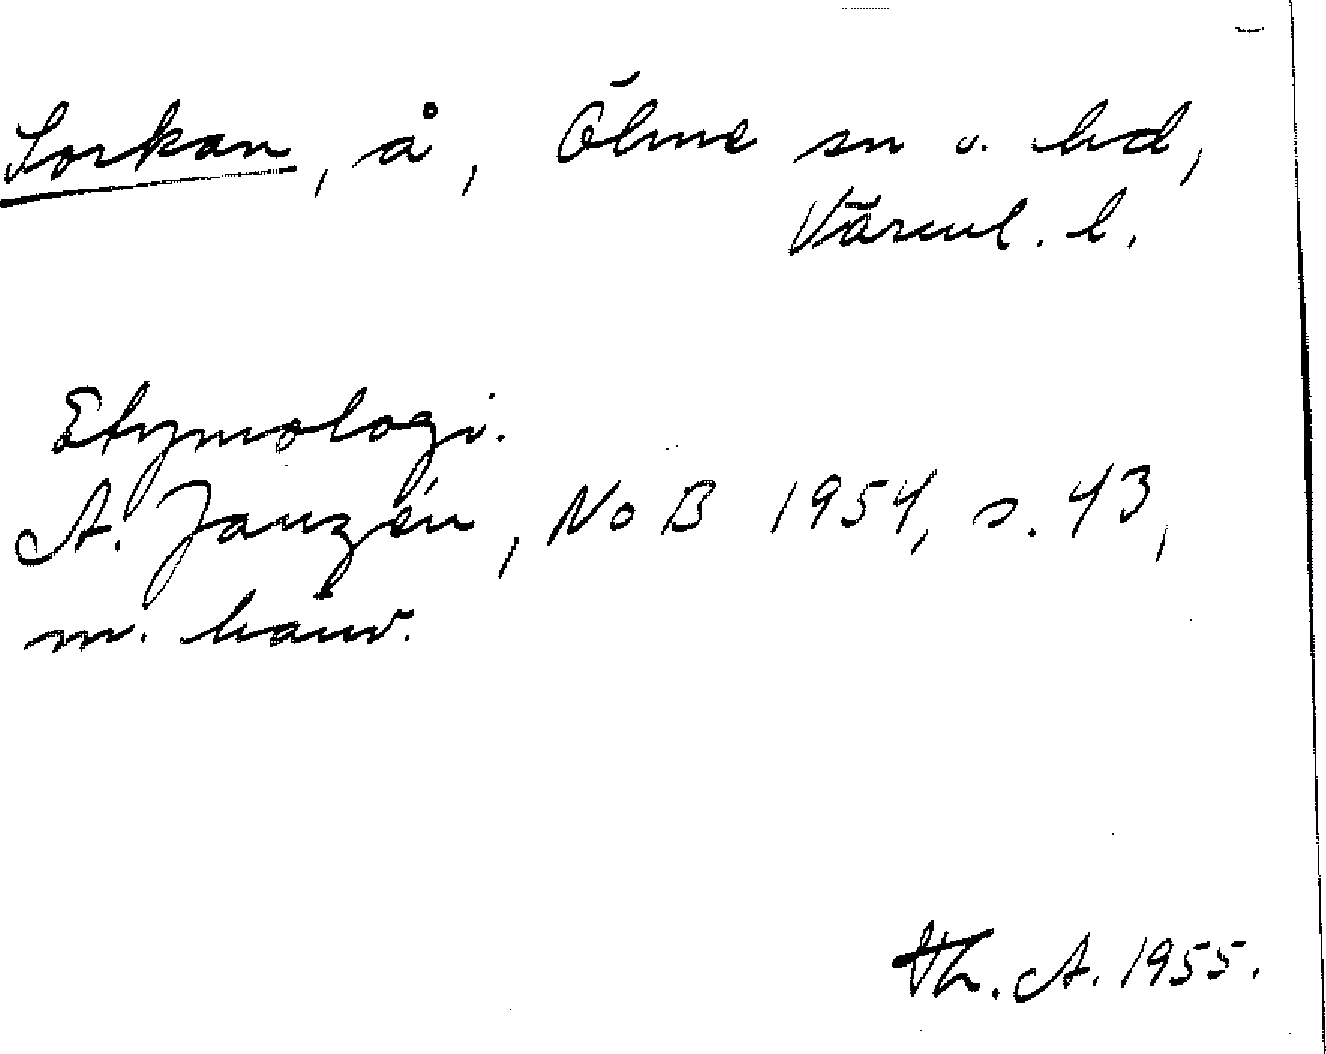 Sorkan, å, Ölme sn o. hd,
Värml. l.
Etymologi.
A. Janzén, NoB 1954, s. 43,
m. hänv.
Th. A. 1955.